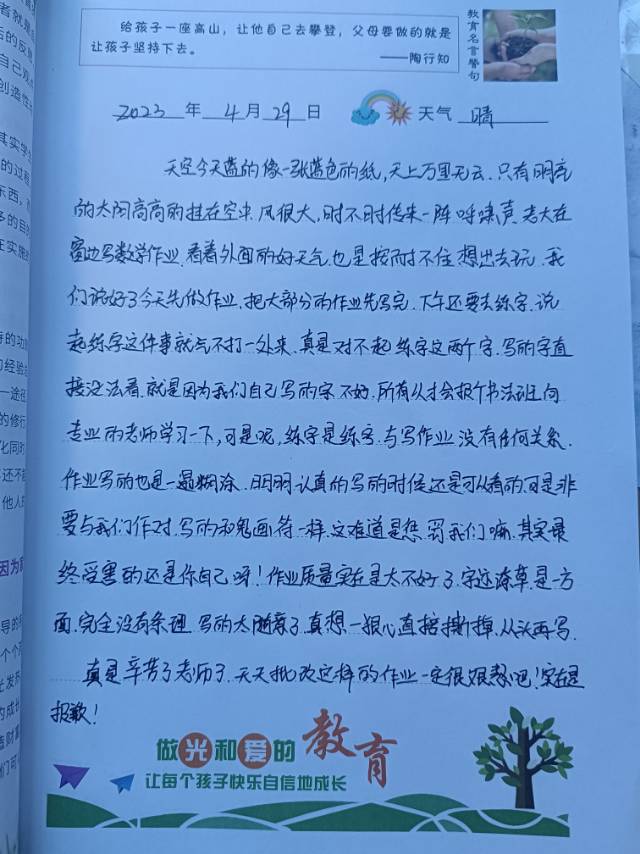 给孩子一座高山，让他自己去攀登，父母要做的就是
让孩子坚持下去。
——陶行知
教育名言警句
2023 年 4 月 29 日 天气 晴
天空今天蓝的像一张蓝色的纸,天上万里无云.只有明亮
的太阳高高的挂在空中.风很大,时不时传来一阵呼啸声.老大在
窗边写数学作业.看着外面的好天气.也是按耐不住想出去玩.我
们说好了今天先做作业.把大部分的作业先写完.下午还要去练字.说
起练字这件事就气不打一处来.真是对不起练字这两个字.写的字直
接没法看.就是因为我们自己写的字不好.所有从才会报个书法班向
专业的老师学习一下,可是呢,练字是练字.与写作业没有任何关系.
作业写的也是一塌糊涂.明明认真的写的时候还是可以看的.可是非
要与我们作对.写的和鬼画符一样.这难道是惩罚我们嘛.其实最
终受害的还是你自己呀!作业质量实在是太不好了.字迹潦草是一方
面.完全没有条理.写的太随意了.真想一狠心直接撕掉.从头再写.
真是辛苦了老师了.天天批改这样的作业一定很艰难吧!实在是
报歉!
做光和爱的教育
让每个孩子快乐自信地成长